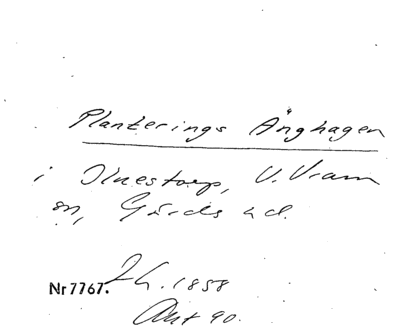 Planterings Änghagen
i Ilnestorp, V. Vram
sn, Gärds hd.
Nr 7767. 1858
Akt 90.